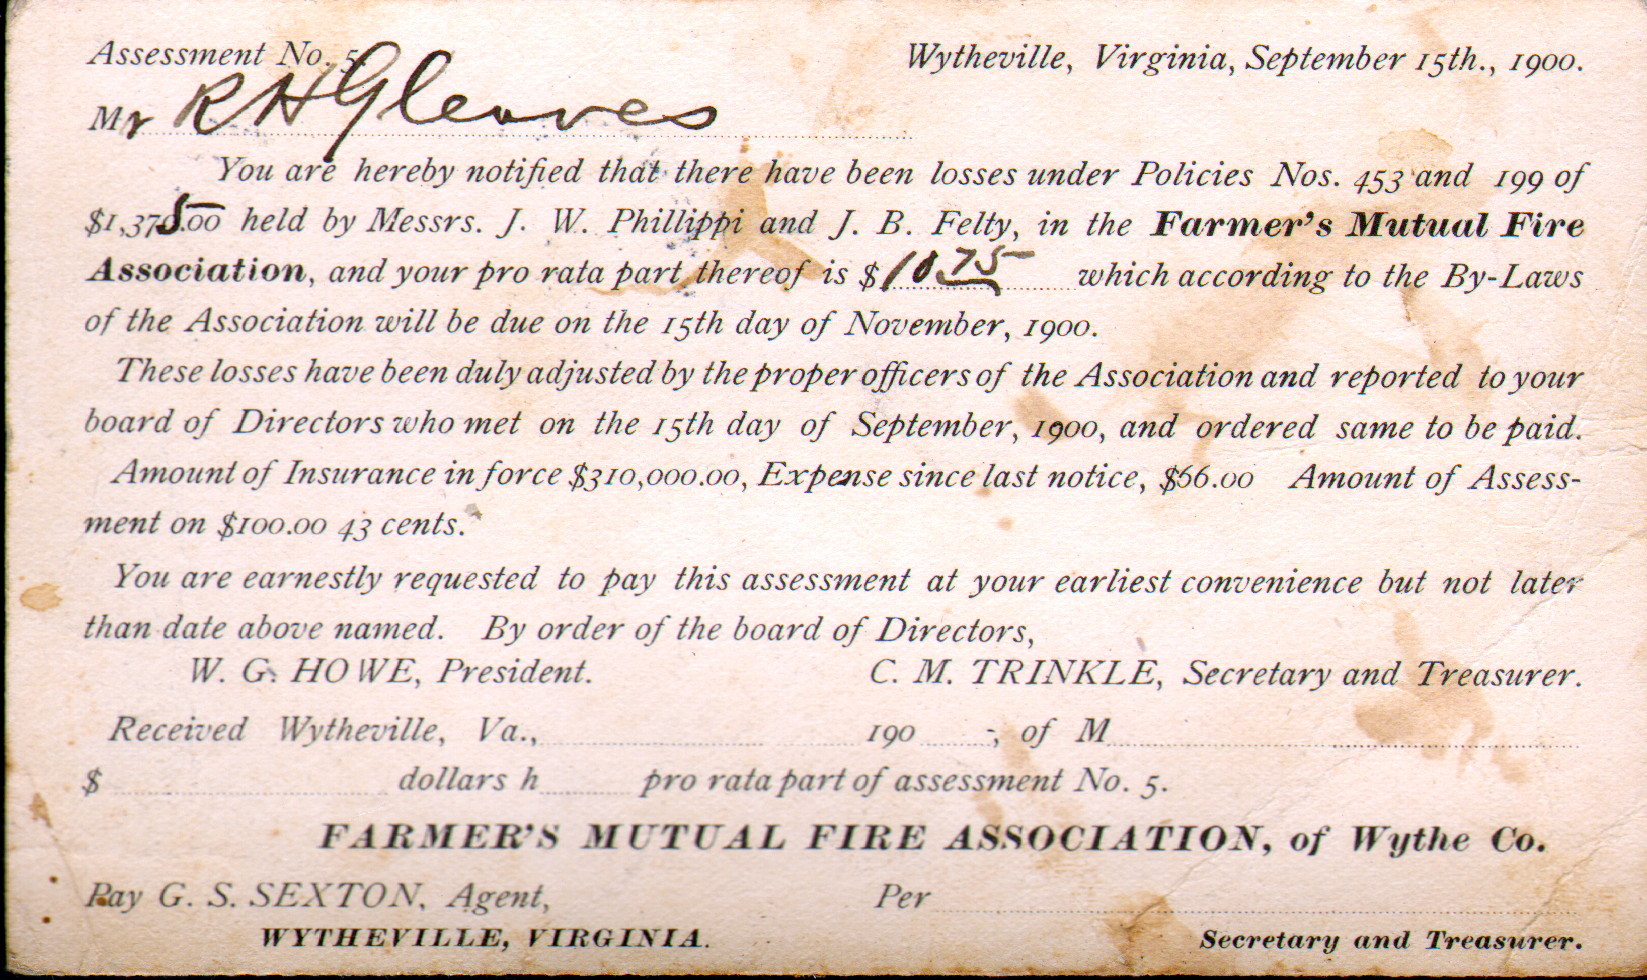 Assessment No. 5. Wytheville, Virginia, September 15th., 1900.
Mr R H Gleaves
You are hereby notified that there have been losses under Policies Nos. 453 and 199 of
$1,375.00 held by Messrs. J. W. Phillippi and J. B. Felty, in the Farmer's Mutual Fire
Association, and your pro rata part thereof is $10 75 which according to the By-Laws
of the Association will be due on the 15th day of November, 1900.
These losses have been duly adjusted by the proper officers of the Association and reported to your
board of Directors who met on the 15th day of September, 1900, and ordered same to be paid.
Amount of Insurance in force $310,000.00, Expense since last notice, $66.00 Amount of Assess-
ment on $100.00 43 cents.
You are earnestly requested to pay this assessment at your earliest convenience but not later
than date above named. By order of the board of Directors,
W. G. HOWE, President. C. M. TRINKLE, Secretary and Treasurer.
Received Wytheville, Va., 190 , of M
$ dollars h pro rata part of assessment No. 5.
FARMER'S MUTUAL FIRE ASSOCIATION, of Wythe Co.
Pay G. S. SEXTON, Agent, Per
WYTHEVILLE, VIRGINIA. Secretary and Treasurer.